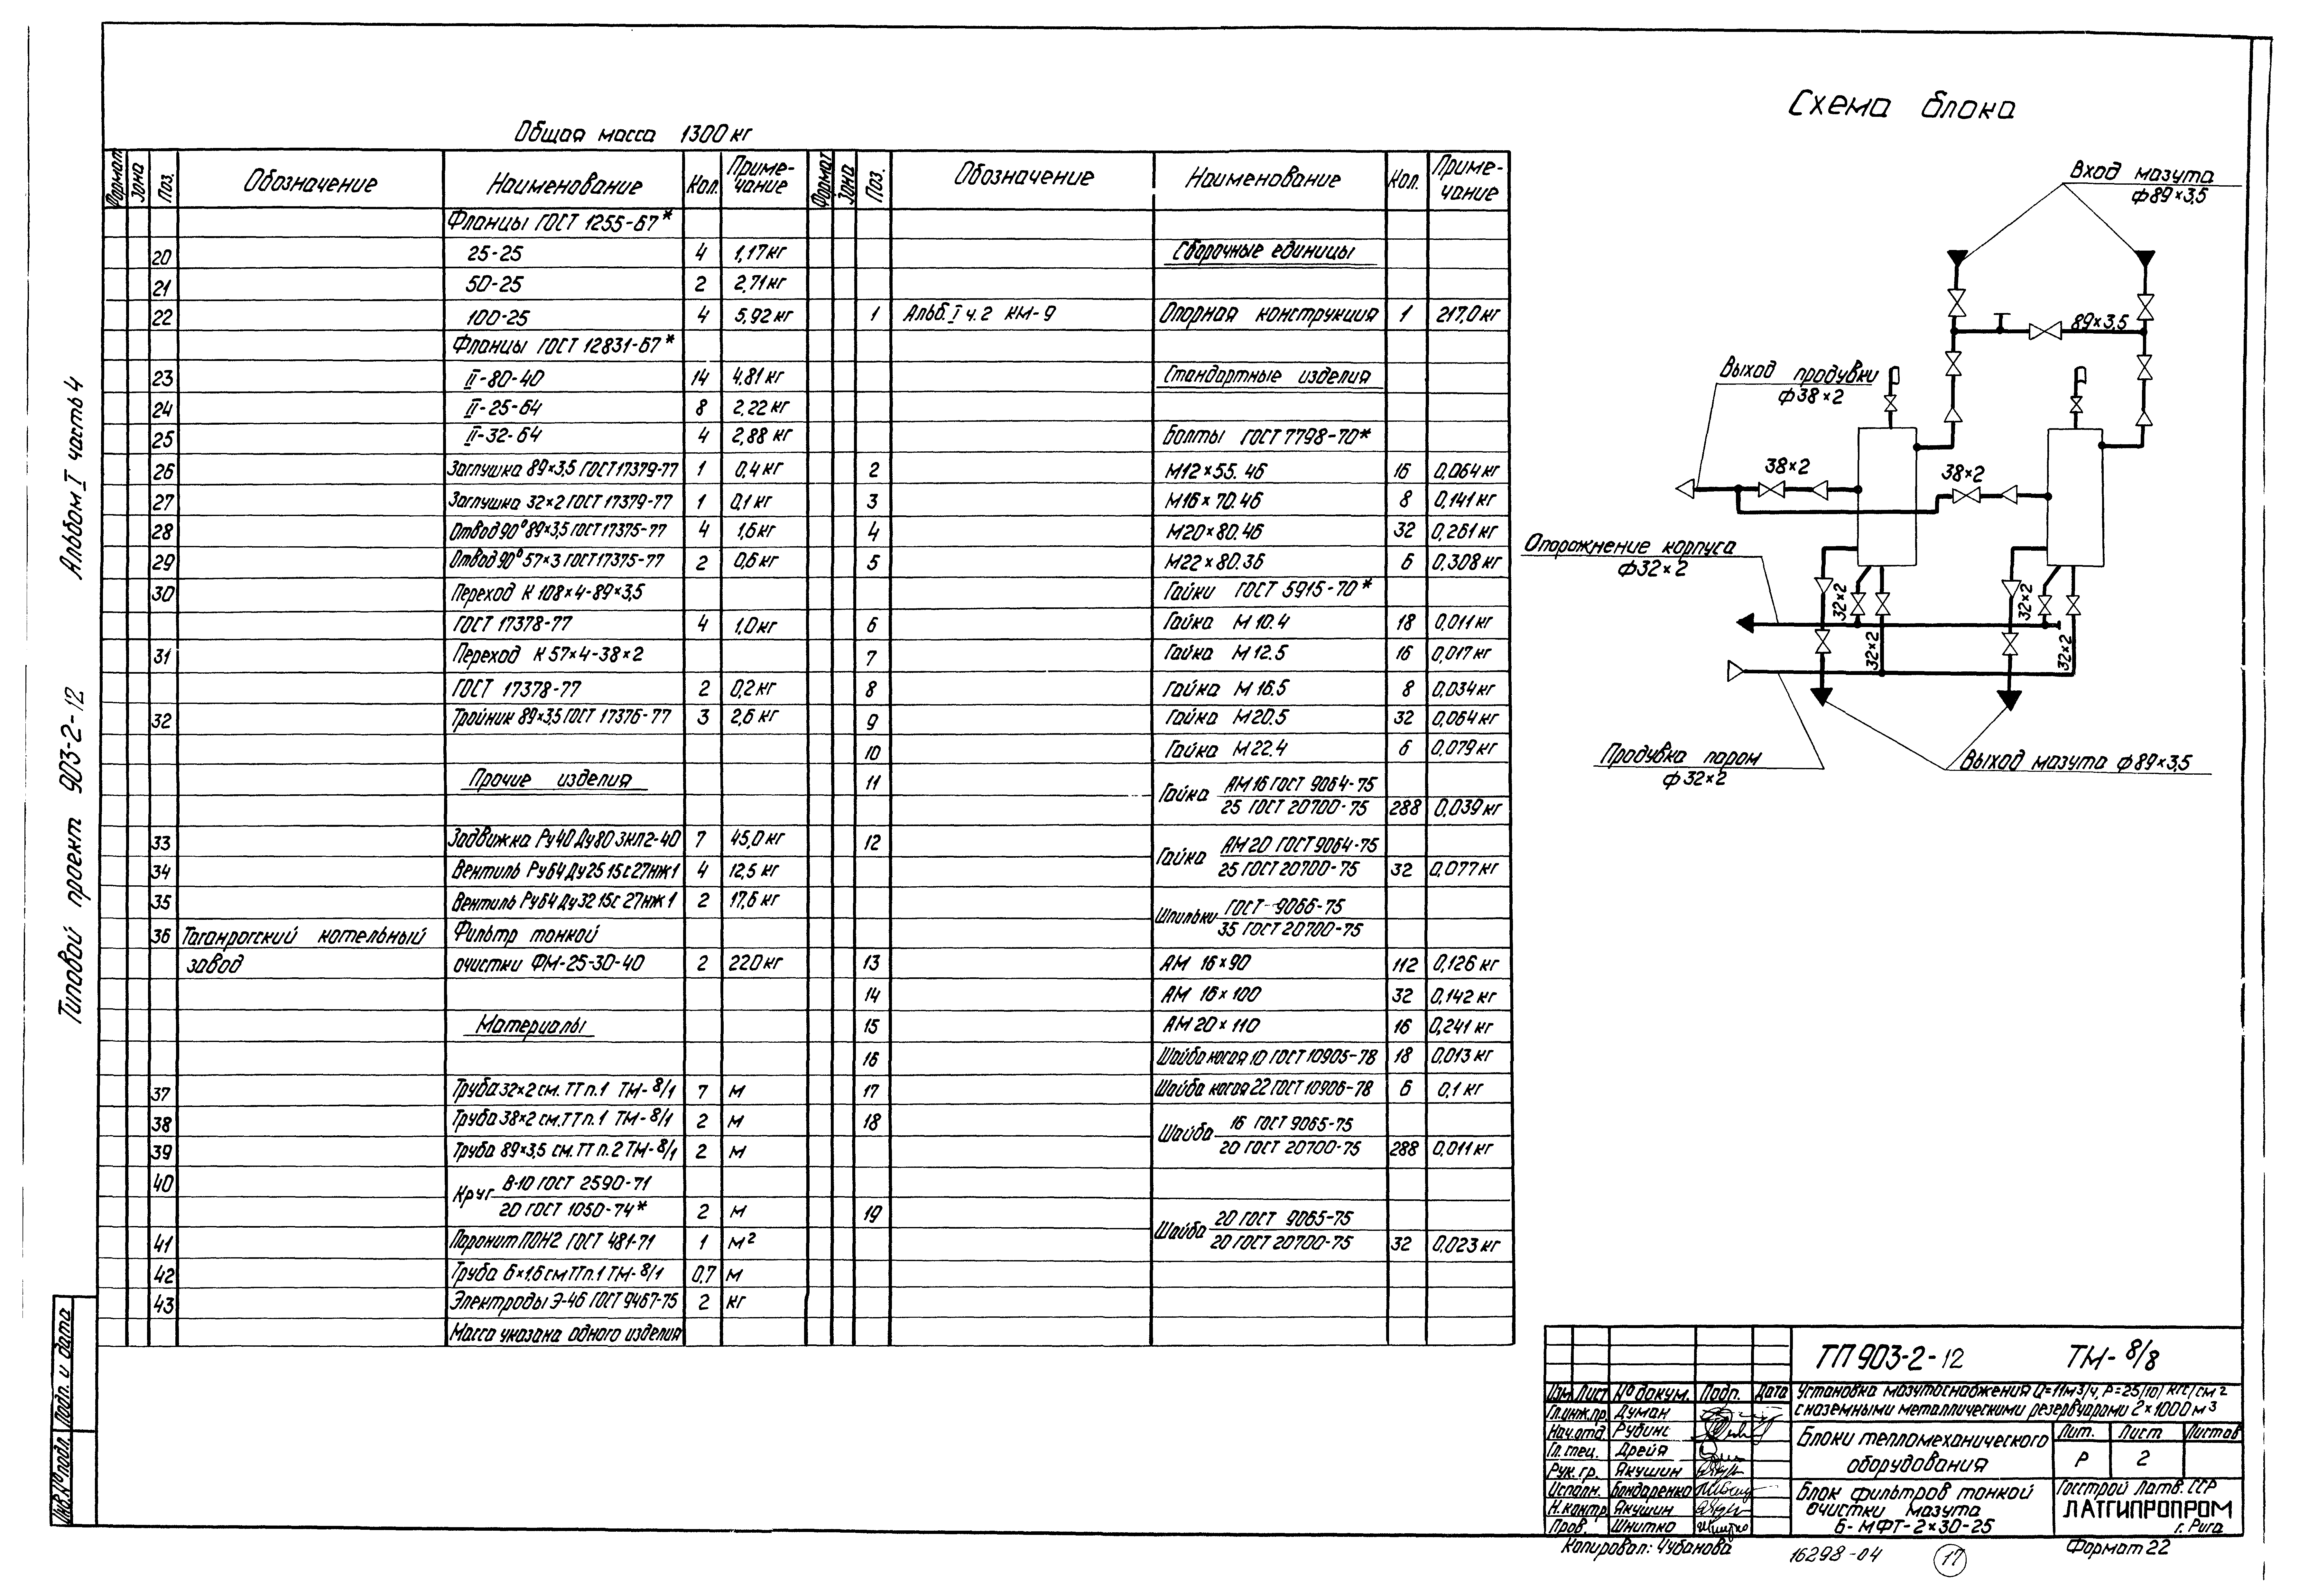 Общая масса 1300 кг
Формат Зона Поз. Обозначение Наименование Кол. Приме-чание
Фланцы ГОСТ 1255-67*
20 25-25 4 1,17 кг
21 50-25 2 2,71 кг
22 100-25 4 5,92 кг
Фланцы ГОСТ 12831-67*
23 II-80-40 14 4,81 кг
24 II-25-64 8 2,22 кг
25 II-32-64 4 2,88 кг
26 Заглушка 89×3,5 ГОСТ 17379-77 1 0,4 кг
27 Заглушка 32×2 ГОСТ 17379-77 1 0,1 кг
28 Отвод 90° 89×3,5 ГОСТ 17375-77 4 1,6 кг
29 Отвод 90° 57×3 ГОСТ 17375-77 2 0,6 кг
30 Переход К 108×4-89×3,5
ГОСТ 17378-77 4 1,0 кг
31 Переход К 57×4-38×2
ГОСТ 17378-77 2 0,2 кг
32 Тройник 89×3,5 ГОСТ 17376-77 3 2,6 кг
Прочие изделия
33 Задвижка Ру40 Ду80 ЗКЛ2-40 7 45,0 кг
34 Вентиль Ру64 Ду25 15с27нж1 4 12,5 кг
35 Вентиль Ру64 Ду32 15с27нж1 2 17,6 кг
36 Таганрогский котельный Фильтр тонкой
завод очистки ФМ-25-30-40 2 220 кг
Материалы
37 Труба 32×2 см. ТТ п.1 ТМ-8/1 7 м
38 Труба 38×2 см. ТТ п.1 ТМ-8/1 2 м
39 Труба 89×3,5 см. ТТ п.2 ТМ-8/1 2 м
40 Круг В-10 ГОСТ 2590-71
20 ГОСТ 1050-74* 2 м
41 Паронит ПОН2 ГОСТ 481-71 1 м²
42 Труба 6×1,6 см ТТп.1 ТМ-8/1 0,7 м
43 Электроды Э-46 ГОСТ 9467-75 2 кг
Масса указана одного изделия
Формат Зона Поз. Обозначение Наименование Кол. Приме-чание
Сборочные единицы
1 Альб. I ч.2 КМ-9 Опорная конструкция 1 217,0 кг
Стандартные изделия
Болты ГОСТ 7798-70*
2 М12×55.46 16 0,064 кг
3 М16×70.46 8 0,141 кг
4 М20×80.46 32 0,261 кг
5 М22×80.36 6 0,308 кг
Гайки ГОСТ 5915-70*
6 Гайка М10.4 18 0,011 кг
7 Гайка М12.5 16 0,017 кг
8 Гайка М16.5 8 0,034 кг
9 Гайка М20.5 32 0,064 кг
10 Гайка М22.4 6 0,079 кг
11 Гайка АМ16 ГОСТ 9064-75
25 ГОСТ 20700-75 288 0,039 кг
12 Гайка АМ20 ГОСТ 9064-75
25 ГОСТ 20700-75 32 0,077 кг
Шпильки ГОСТ 9066-75
35 ГОСТ 20700-75
13 АМ 16×90 112 0,126 кг
14 АМ 16×100 32 0,142 кг
15 АМ 20×110 16 0,241 кг
16 Шайба косая 10 ГОСТ 10905-78 18 0,013 кг
17 Шайба косая 22 ГОСТ 10906-78 6 0,1 кг
18 Шайба 16 ГОСТ 9065-75
20 ГОСТ 20700-75 288 0,011 кг
19 Шайба 20 ГОСТ 9065-75
20 ГОСТ 20700-75 32 0,023 кг
Схема блока
Вход мазута
ф89×3,5
89×3,5
Выход продувки
ф38×2
38×2
38×2
Опорожнение корпуса
ф32×2
32×2
32×2
32×2
32×2
Продувка паром
ф32×2
Выход мазута ф89×3,5
Альбом I часть 4
Типовой проект 903-2-12
Подп. и дата
Инв.№ подл.
ТП 903-2-12 ТМ-8/8
Изм Лист № докум. Подп. Дата
Гл.инж.пр. Думан
Нач.отд. Рубинс
Гл.спец. Дрейя
Рук.гр. Якушин
Исполн. Бондаренко
Н.контр. Якушин
Пров. Шнитко
Установка мазутоснабжения Q=11м3/ч, Р=25/10/ кгс/см2
с наземными металлическими резервуарами 2×1000 м3
Блоки тепломеханического
оборудования
Лит. Лист Листов
Р 2
Блок фильтров тонкой
очистки мазута
Б-МФТ-2×30-25
Госстрой Латв. ССР
ЛАТГИПРОПРОМ
г. Рига
Копировал: Чубанова
16298-04
17
Формат 22